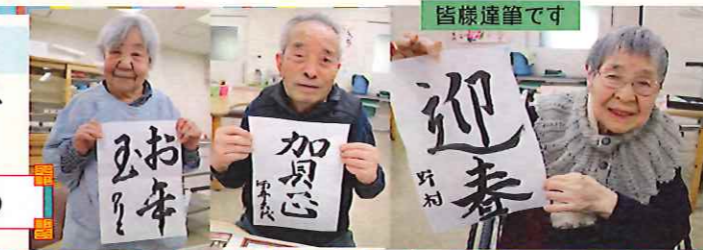 皆様達筆です
お年
玉
賀正
迎春
野村